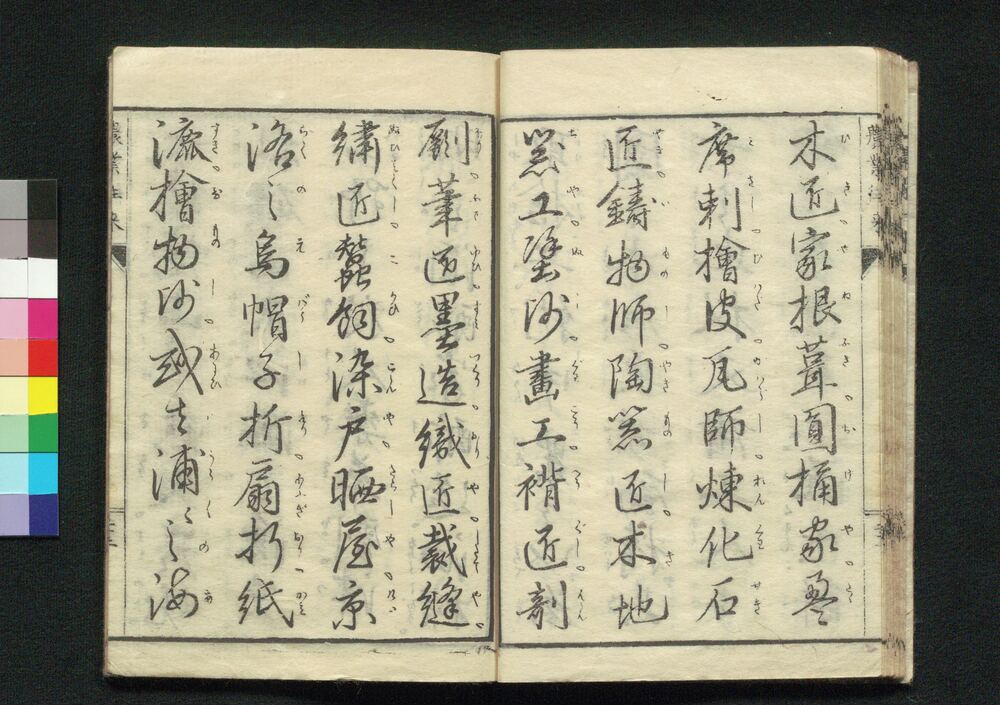 木匠家根葺圓桶家疊
席刺檜皮瓦師煉化石
匠鑄物師陶器匠木地
器工塗師畫工褙匠剞
劂筆匠墨造織匠裁縫
繍匠蠶飼染戸晒屋京
洛之烏帽子折扇折紙
漉檜物師或者浦々之海